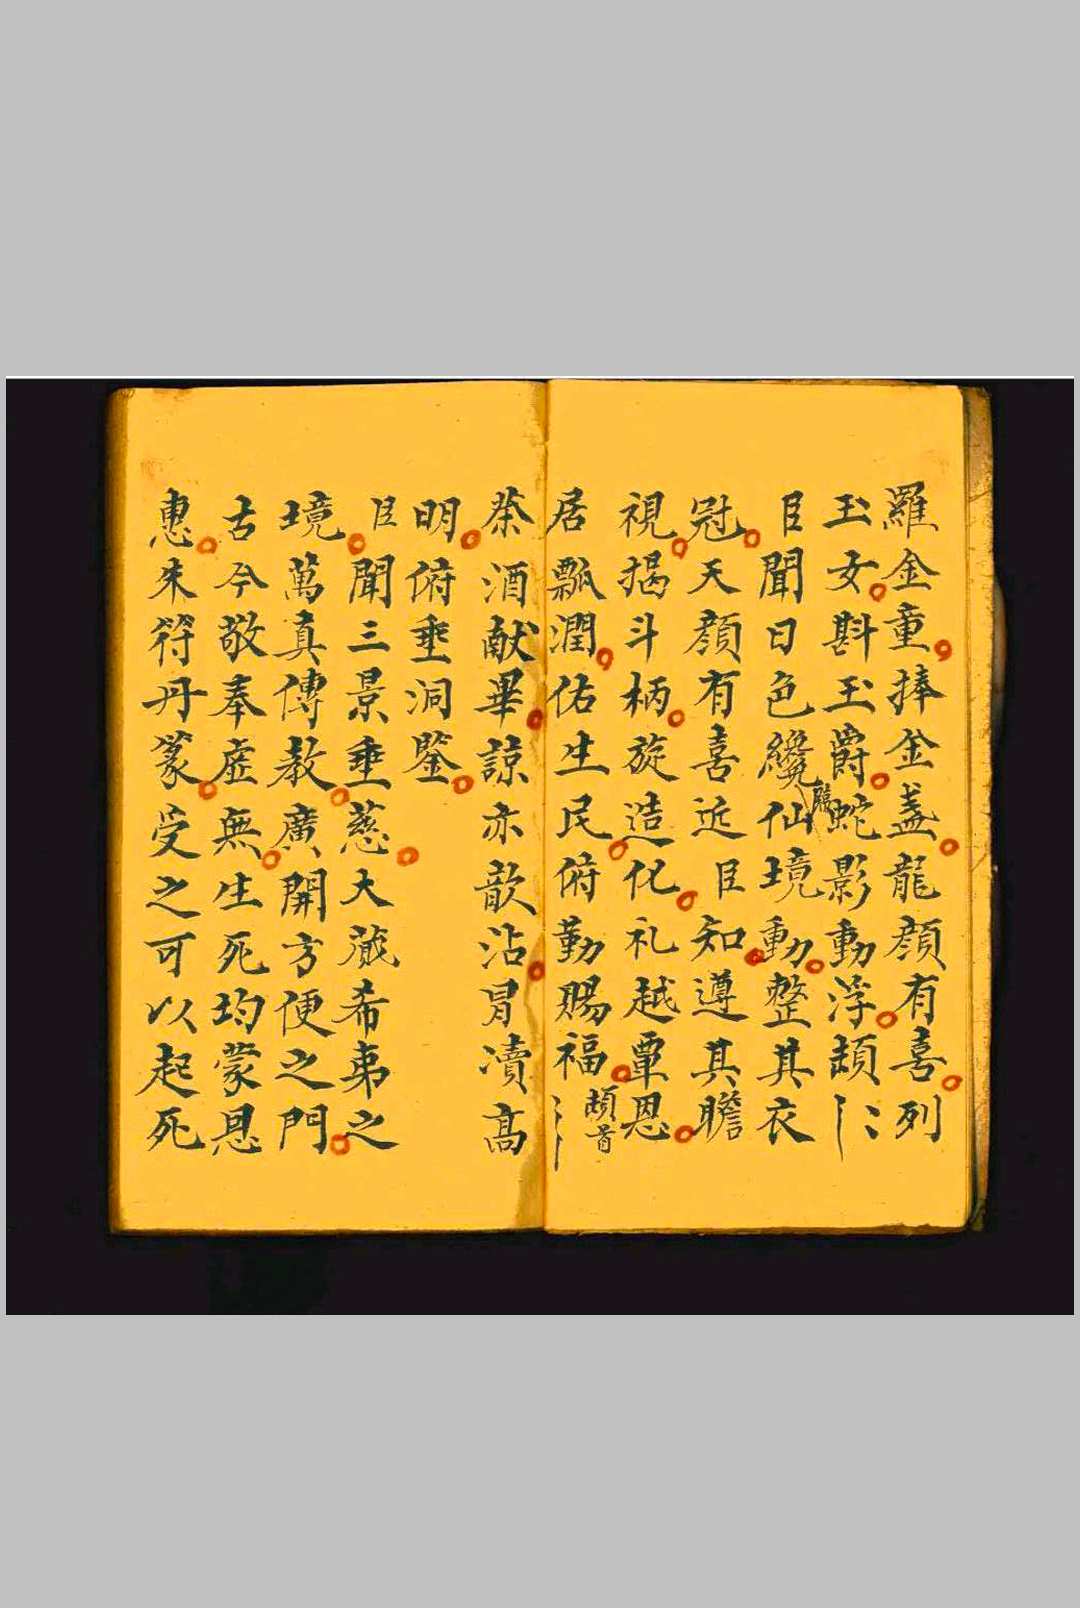 羅金童捧金盞龍顔有喜列
玉女斟玉爵蛇影動浮頡
臣聞日色纔臨仙境動整其衣
冠天顔有喜近臣知遵其瞻
視揭斗柄旋造化礼越覃恩
居瓢潤佑生民俯勤賜福頡首
茶酒献畢諒亦歆沾冐瀆高
明俯垂洞鑒
臣聞三景垂慈大藏希夷之
境萬真傳教廣開方便之門
古今敬奉虚無生死均蒙恩
惠朱符丹篆受之可以起死